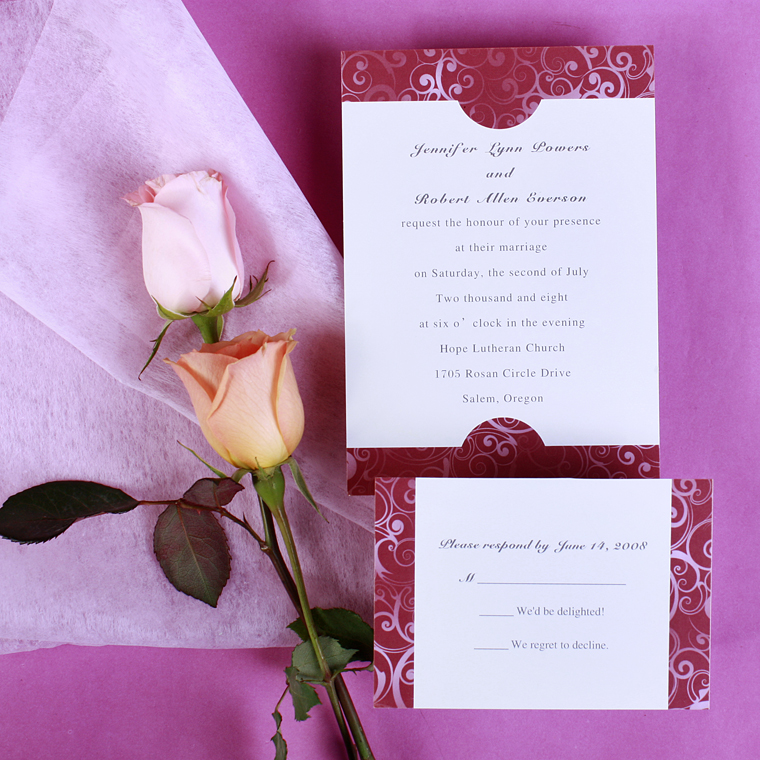 Jennifer Lynn Powers
and
Robert Allen Everson
request the honour of your presence
at their marriage
on Saturday, the second of July
Two thousand and eight
at six o' clock in the evening
Hope Lutheran Church
1705 Rosan Circle Drive
Salem, Oregon
Please respond by June 14, 2008
M
We'd be delighted!
We regret to decline.